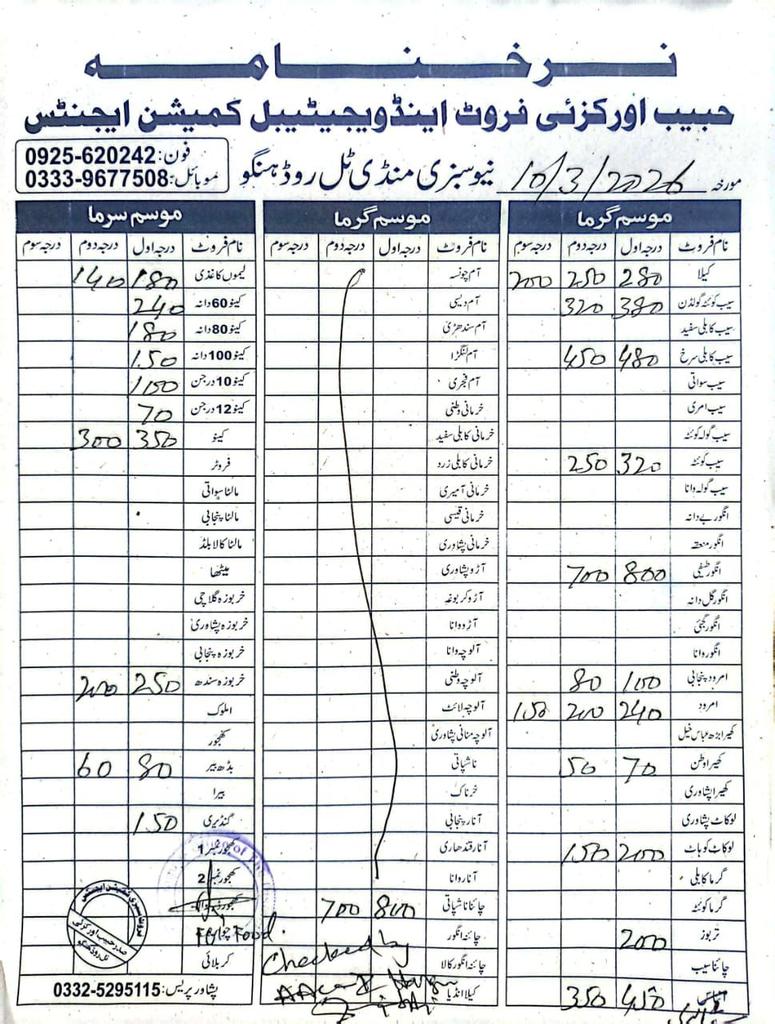 نرخنامہ
حبیب اورکزئی فروٹ اینڈ ویجیٹیبل کمیشن ایجنٹس
مورخہ 10/3/2026 نیو سبزی منڈی ٹل روڈ ہنگو
فون: 0925-620242
موبائل: 0333-9677508
موسم گرما
نام فروٹ درجہ اول درجہ دوم درجہ سوم
کیلا 280 250 200
سیب کوئٹہ گولڈن 380 320
سیب کابلی سفید
سیب کابلی سرخ 480 450
سیب سواتی
سیب امری
سیب گولہ کوئٹہ
سیب کوئٹہ 320 250
سیب گولہ وانا
انگور بے دانہ
انگور منقہ
انگور طیفی 800 700
انگور گل دانہ
انگور گچئی
انگور وانا
امرود پنجابی 100 80
امرود 240 200 150
کھیرا بڑھ عباس خیل
کھیرا وطن 70 50
کھیرا پشاوری
لوکاٹ پشاوری
لوکاٹ کوہاٹ 200 150
گرما کابلی
گرما کوئٹہ
تربوز 200
چائنا سیب
450 350
موسم گرما
نام فروٹ درجہ اول درجہ دوم درجہ سوم
آم چونسہ
آم دیسی
آم سندھڑی
آم لنگڑا
آم فجری
خرمانی وطنی
خرمانی کابلی سفید
خرمانی کابلی زرد
خرمانی آمیری
خرمانی قیسی
خرمانی پشاوری
آڑو پشاوری
آڑو کربوغہ
آڑو وانا
آلوچہ وانا
آلوچہ وطنی
آلوچہ لائٹ
آلوچہ منانی پشاوری
ناشپاتی
خرناک
آنار پنجابی
آنار قندھاری
آنار وانا
چائنا ناشپاتی 800 700
چائنہ انگور
چائنہ انگور کالا
کیلا انڈیا
موسم سرما
نام فروٹ درجہ اول درجہ دوم درجہ سوم
لیموں کاغذی 180 140
کینو 60 دانہ 240
کینو 80 دانہ 180
کینو 100 دانہ 150
کینو 10 درجن 100
کینو 12 درجن 70
کینو 350 300
فروٹر
مالٹا سواتی
مالٹا پنجابی
مالٹا کالا بلڈ
میٹھا
خربوزہ گلاچی
خربوزہ پشاوری
خربوزہ پنجابی
خربوزہ سندھ 250 200
املوک
کھجور
بڈھ بیر 80 60
بیرا
گنڈیری 150
کھجور نمبر 1
کھجور نمبر 2
کربلائی
پشاور پریس: 0332-5295115
Food.
Checked by